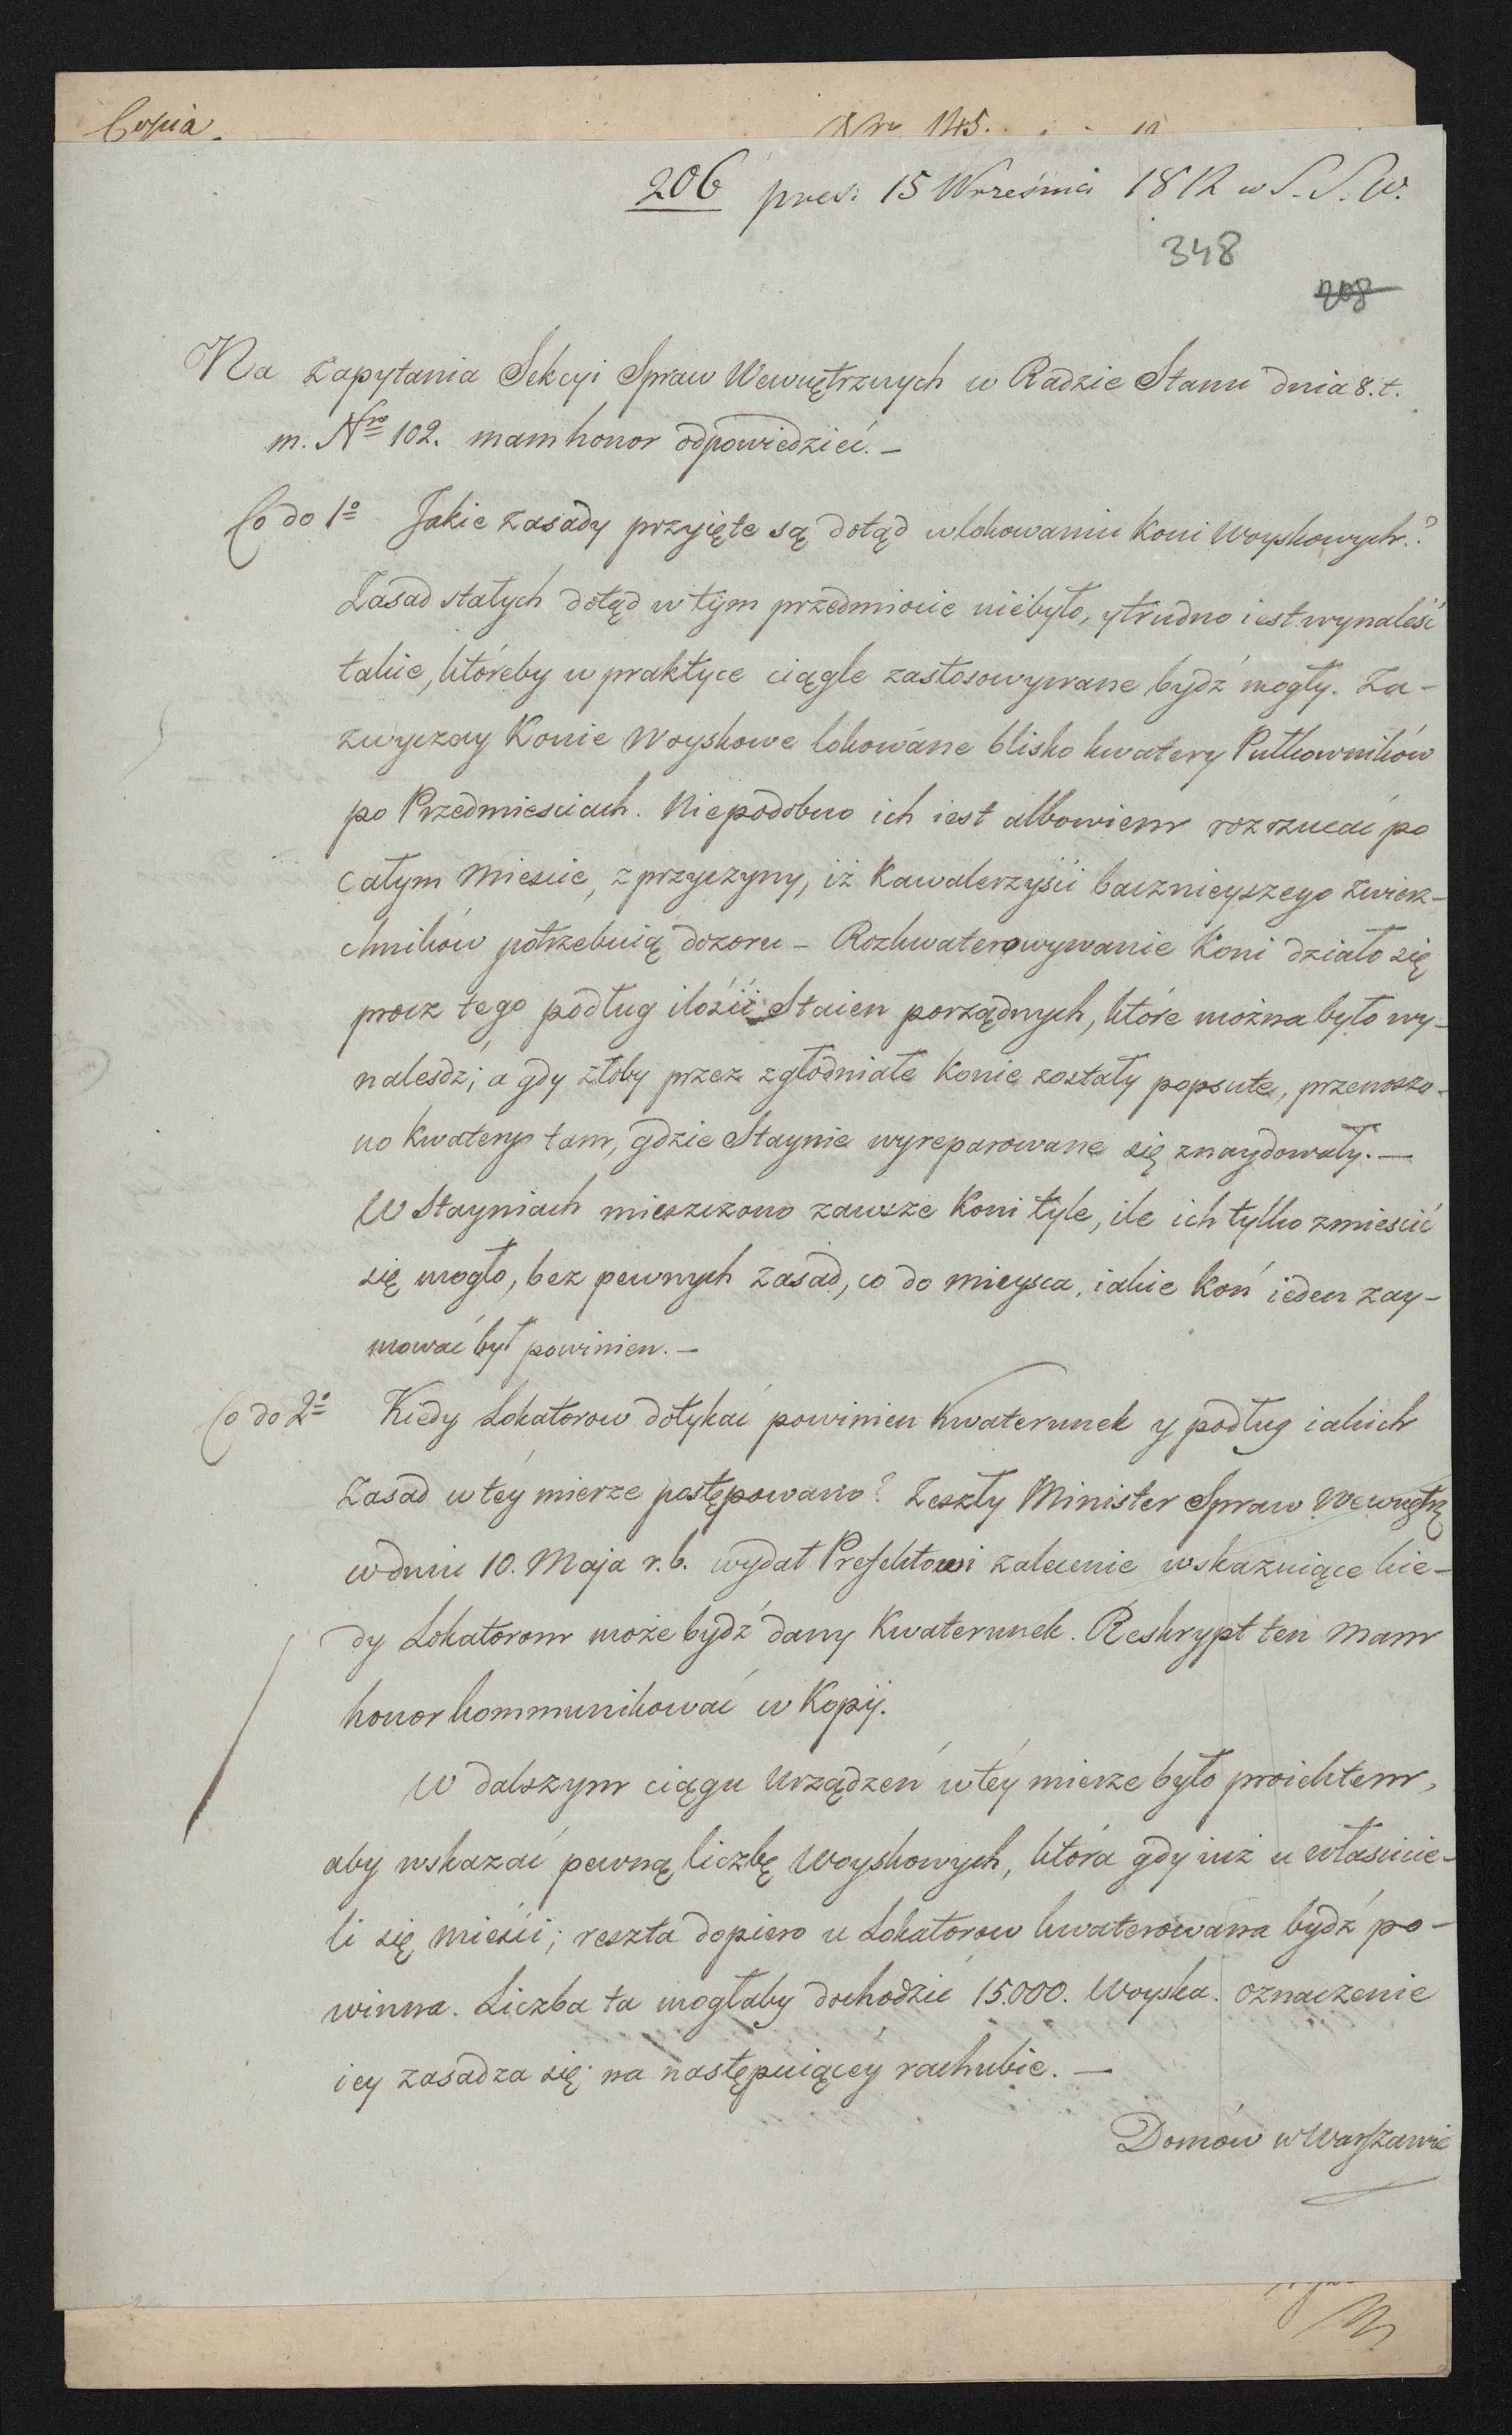 Copia.
Nro 145.
206 pres: 15 Września 1812 w S. S. W.
348
208
Na zapytania Sekcyi Spraw Wewnętrznych w Radzie Stanu dnia 8. t.
m. Nro 102. mam honor odpowiedzieć. —
Co do 1o Jakie zasady przyięte są dotąd w lokowaniu koni Woyskowych?
Zasad stałych dotąd w tym przedmiocie niebyło, y trudno iest wynaleść
takie, któreby w praktyce ciągle zastosowywane bydź mogły. Za-
zwyczay Konie Woyskowe lokowane blisko kwatery Pułkowników
po Przedmiesciach. Niepodobno ich iest albowiem rozrzucać po
całym Miescie, z przyczyny, iż Kawalerzyści bacznieyszego zwierz-
chników potrzebuią dozoru — Rozkwaterowywanie Koni działo się
procz tego podług ilości Staien porządnych, które można było wy-
nalesdź; a gdy żłoby przez zgłodniałe Konie zostały popsute, przenoszo-
no Kwatery tam, gdzie Staynie wyreparowane się znaydowały. —
W Stayniach mieszczono zawsze Koni tyle, ile ich tylko zmiescić
się mogło, bez pewnych zasad, co do mieysca, iakie Koń ieden zay-
mować był powinien. —
Co do 2o Kiedy Lokatorow dotykać powinien Kwaterunek y podług iakich
zasad w téy mierze postępowano? Zeszły Minister Spraw Wewnętrz
w dniu 10. Maja r. b. wydał Prefektowi zalecenie wskazuiące kie-
dy Lokatorom może bydź dany Kwaterunek. Reskrypt ten mam
honor kommunikować w Kopij.
W dalszym ciągu urządzeń w téy mierze było proiektem,
aby wskazać pewną liczbę Woyskowych, która gdy iuż u właścicie-
li się mieści; reszta dopiero u Lokatorow kwaterowana bydź po-
winna. Liczba ta mogłaby dochodzić 15.000. Woyska. oznaczenie
iey zasadza się na następuiącéy rachubie. —
Domów w Warszawie